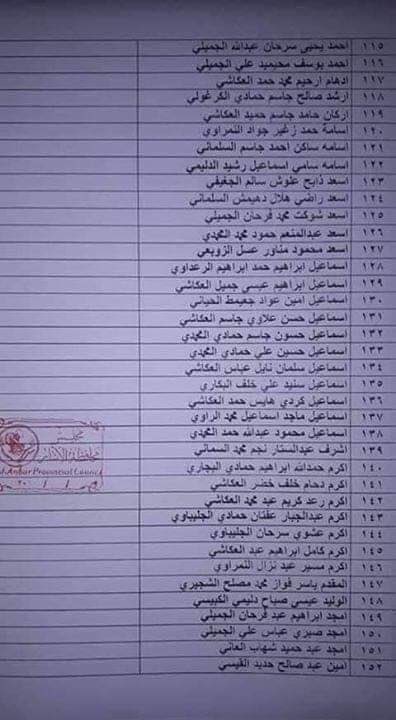 ١١٥ احمد يحيى سرحان عبدالله الجميلي
١١٦ احمد يوسف محيميد علي الجميلي
١١٧ ادهام ارحيم محمد حمد العكاشي
١١٨ ارشد صالح جاسم حمادي الكرغولي
١١٩ اركان حامد جاسم حميد العكاشي
١٢٠ اسامة حمد زغير جواد النمراوي
١٢١ اسامه ساكن احمد جاسم السلماني
١٢٢ اسامه سامي اسماعيل رشيد الدليمي
١٢٣ اسعد ذايح علوش سالم الجغيفي
١٢٤ اسعد راضي هلال دهيمش السلماني
١٢٥ اسعد شوكت محمد فرحان الجميلي
١٢٦ اسعد عبدالمنعم حمود محمد المحمدي
١٢٧ اسعد محمود مناور عسل الزوبعي
١٢٨ اسماعيل ابراهيم حمد ابراهيم الرعداوي
١٢٩ اسماعيل ابراهيم عيسى جميل العكاشي
١٣٠ اسماعيل امين عواد جعيمط الحياني
١٣١ اسماعيل حسن علاوي جاسم العكاشي
١٣٢ اسماعيل حسون جاسم حمادي المحمدي
١٣٣ اسماعيل حسين علي حمادي المحمدي
١٣٤ اسماعيل سلمان نايل عباس العكاشي
١٣٥ اسماعيل سنيد علي خلف البكاري
١٣٦ اسماعيل كردي هايس حمد العكاشي
١٣٧ اسماعيل ماجد اسماعيل محمد الراوي
١٣٨ اسماعيل محمود عبدالله حمد المحمدي
١٣٩ اشرف عبدالستار نجم محمد السماني
١٤٠ اكرم حمدالله ابراهيم حمادي البجاري
١٤١ اكرم دحام خلف خضر العكاشي
١٤٢ اكرم رعد كريم عبد محمد العكاشي
١٤٣ اكرم عبدالجبار عفتان حمادي الجليباوي
١٤٤ اكرم عشوي سرحان الجليباوي
١٤٥ اكرم كامل ابراهيم عبد العكاشي
١٤٦ اكرم مسير عبد نزال النمراوي
١٤٧ المقدم ياسر فواز محمد مصلح الشجيري
١٤٨ الوليد عيسى صباح دليمي الكبيسي
١٤٩ امجد ابراهيم عبد فرحان الجميلي
١٥٠ امجد صبري عباس علي الجميلي
١٥١ امجد عبد حميد شهاب العاني
١٥٢ امين عبد صالح حديد القيسي
مجلس
محافظة الانبار
Anbar Provincial Council